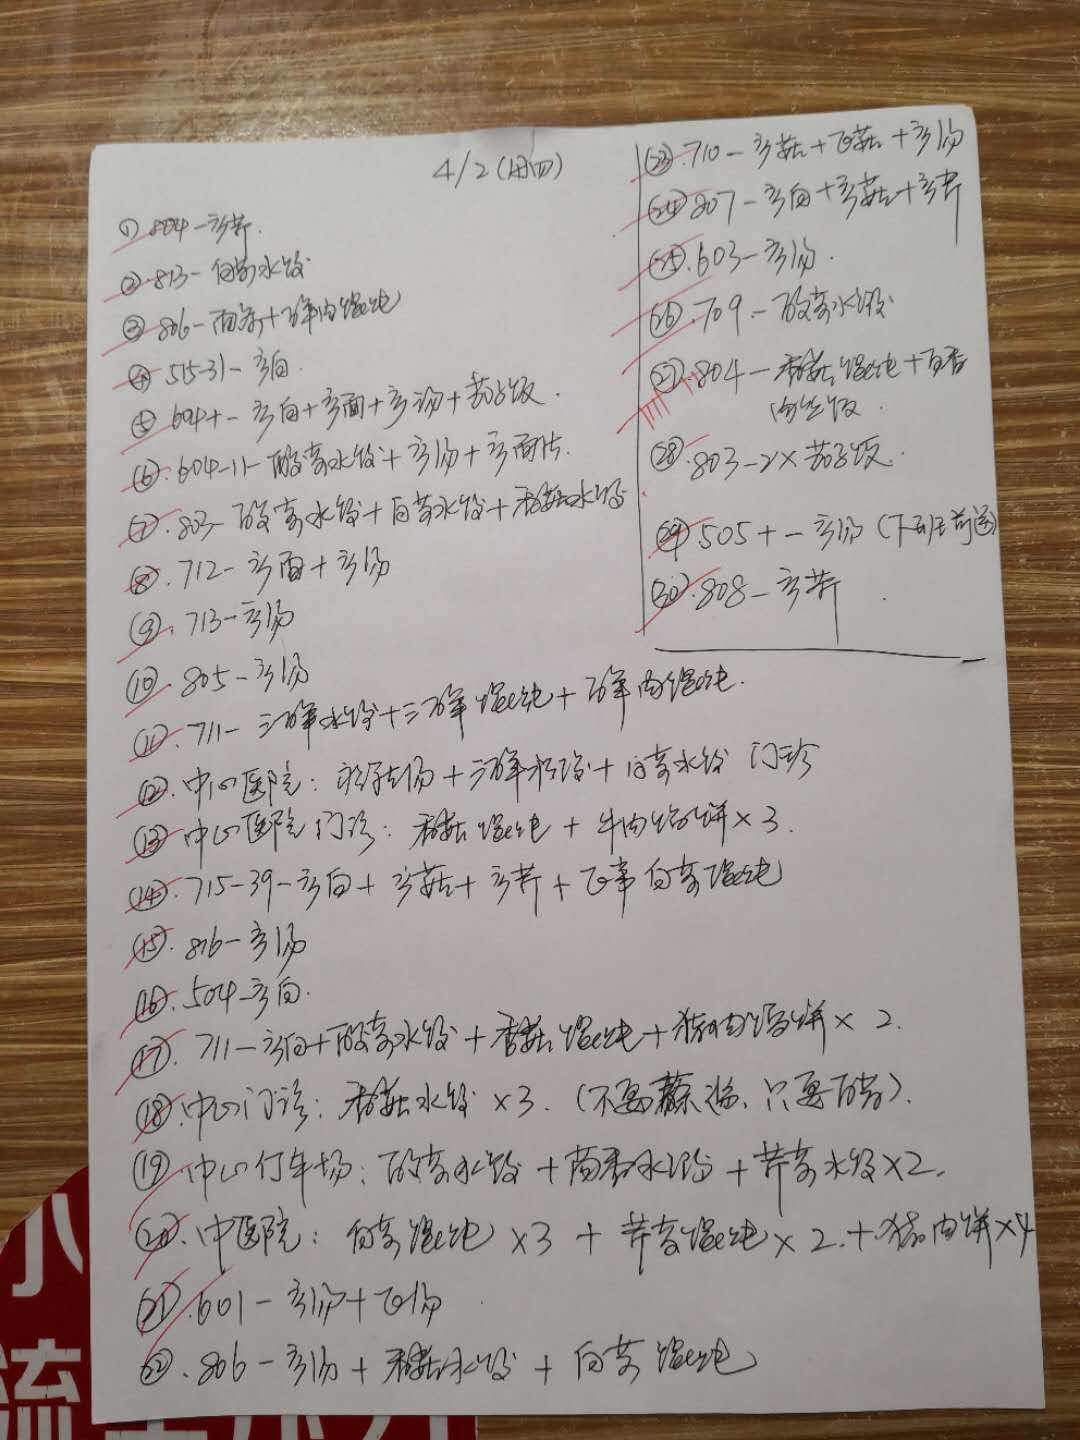 4/2(周四)
① 804-云芹.
②.813-白菜水饺
③ 806-西芹+鲜肉馄饨
④ 515-31-云白.
⑤ 604+-云白+云面+云汤+茄子饭.
⑥.604-11-酸菜水饺+云汤+云面片.
⑦.803-酸菜水饺+白菜水饺+香菇水饺
⑧.712-云面+云汤
⑨.713-云汤
⑩.805-云汤
⑪.711-三鲜水饺+三鲜馄饨+鲜肉馄饨.
⑫.中心医院:汤+三鲜水饺+白菜水饺 门诊
⑬.中心医院门诊:香菇馄饨+牛肉馅饼×3.
⑭.715-39-云白+云菇+云芹+飞 白菜馄饨
⑮.816-云汤
⑯.504-云白.
⑰.711-云白+酸菜水饺+香菇馄饨+猪肉馅饼×2.
⑱.中心门诊:香菇水饺×3.(不要,只要).
⑲.中心停车场:酸菜水饺+茴香水饺+芹菜水饺×2.
⑳.中医院:白菜馄饨×3+芹菜馄饨×2.+猪肉饼×4
㉑.601-云汤+飞汤
㉒.806-云汤+香菇水饺+白菜馄饨
㉓.710-云菇+飞菇+云汤
㉔ 807-云白+云菇+云芹
㉕.603-云汤.
㉖.709-酸菜水饺
㉗.804-香菇馄饨+百香
肉丝饭.
㉘.803-2×茄子饭.
㉙ 505+-云汤(下班前送)
㉚.808-云芹.
小
流